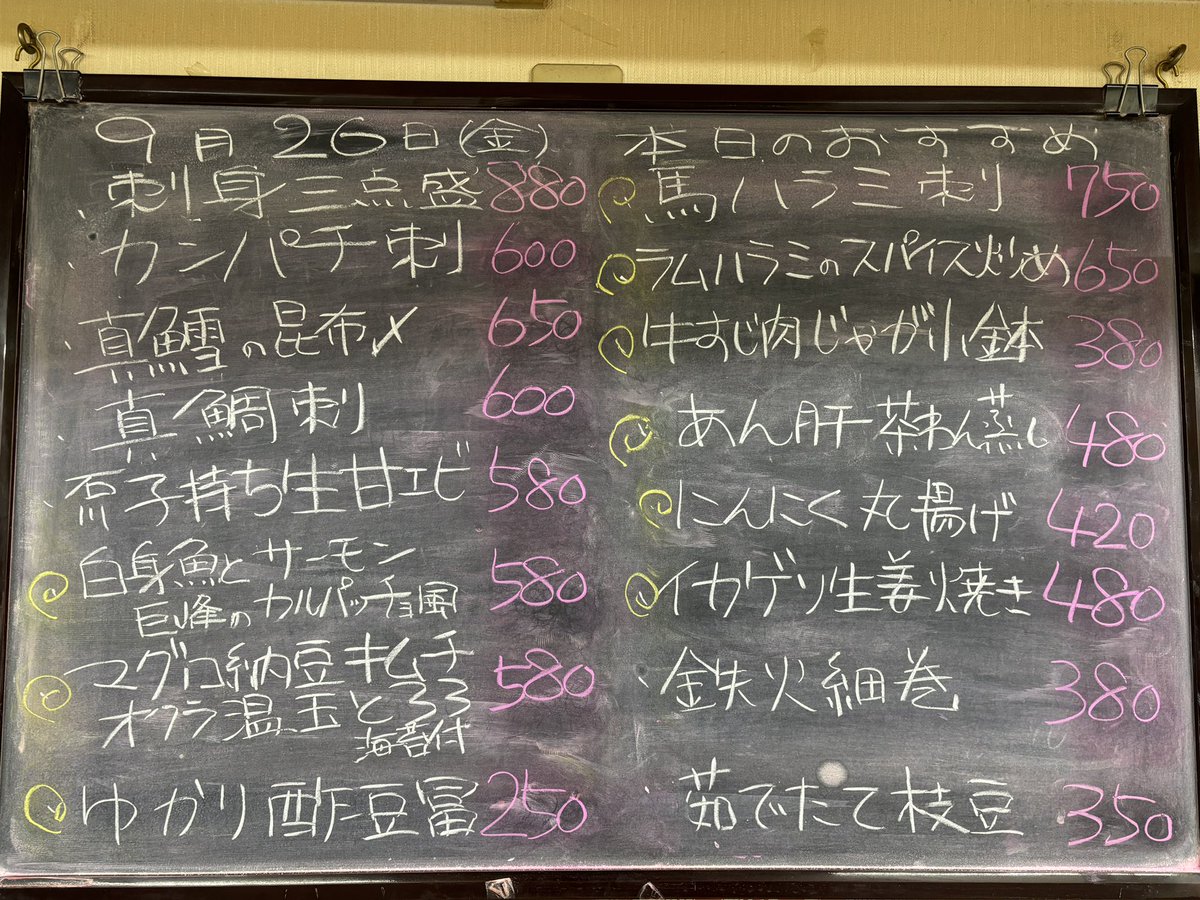 9月26日(金)
刺身三点盛 880
カンパチ刺 600
真鱈の昆布〆 650
真鯛刺 600
子持ち生甘エビ 580
白身魚とサーモン
巨峰のカルパッチョ風 580
マグロ納豆キムチ
オクラ温玉とろろ 580
海苔付
ゆかり酢豆富 250
本日のおすすめ
馬ハラミ刺 750
ラムハラミのスパイス炒め 650
牛すじ肉じゃが小鉢 380
あん肝茶わん蒸し 480
にんにく丸揚げ 420
イカゲソ生姜焼き 480
鉄火細巻 380
茹でたて枝豆 350